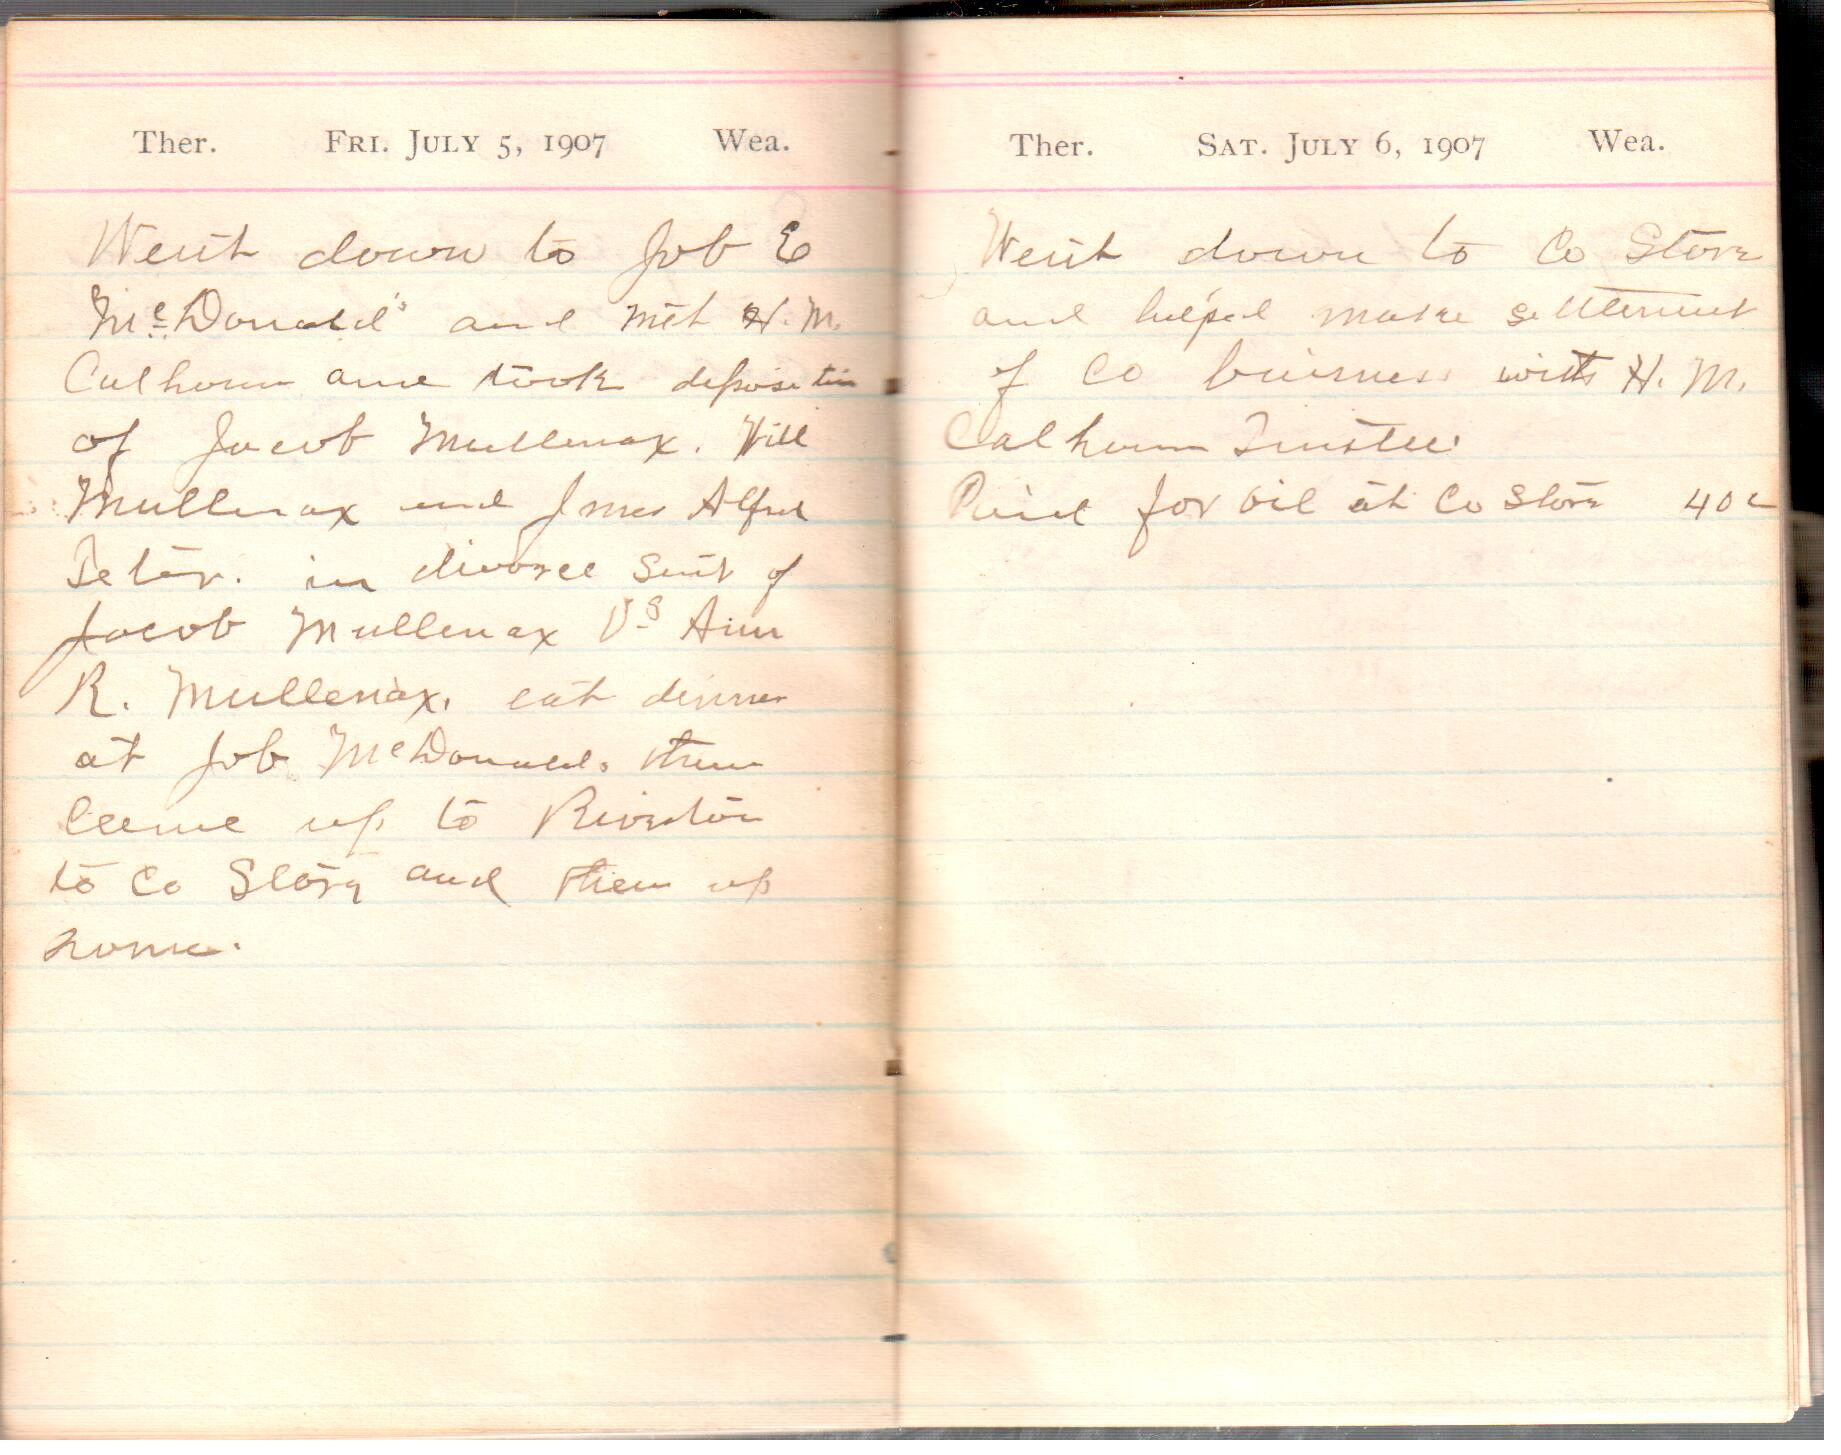 Ther. FRI. JULY 5, 1907 Wea.
Went down to Job E
McDonald's and met H. M.
Calhoun and took deposition
of Jacob Mullenax. Will
Mullenax and Jmes Alfred
Teter. in divorce suit of
Jacob Mullenax Vs Ann
R. Mullenax. eat dinner
at Job McDonald. then
came up to Riverton
to Co Store and then up
home.
Ther. SAT. JULY 6, 1907 Wea.
Went down to Co Store
and helped make settlement
of Co business with H. M.
Calhoun Trustee
Paid for oil at Co Store 40c